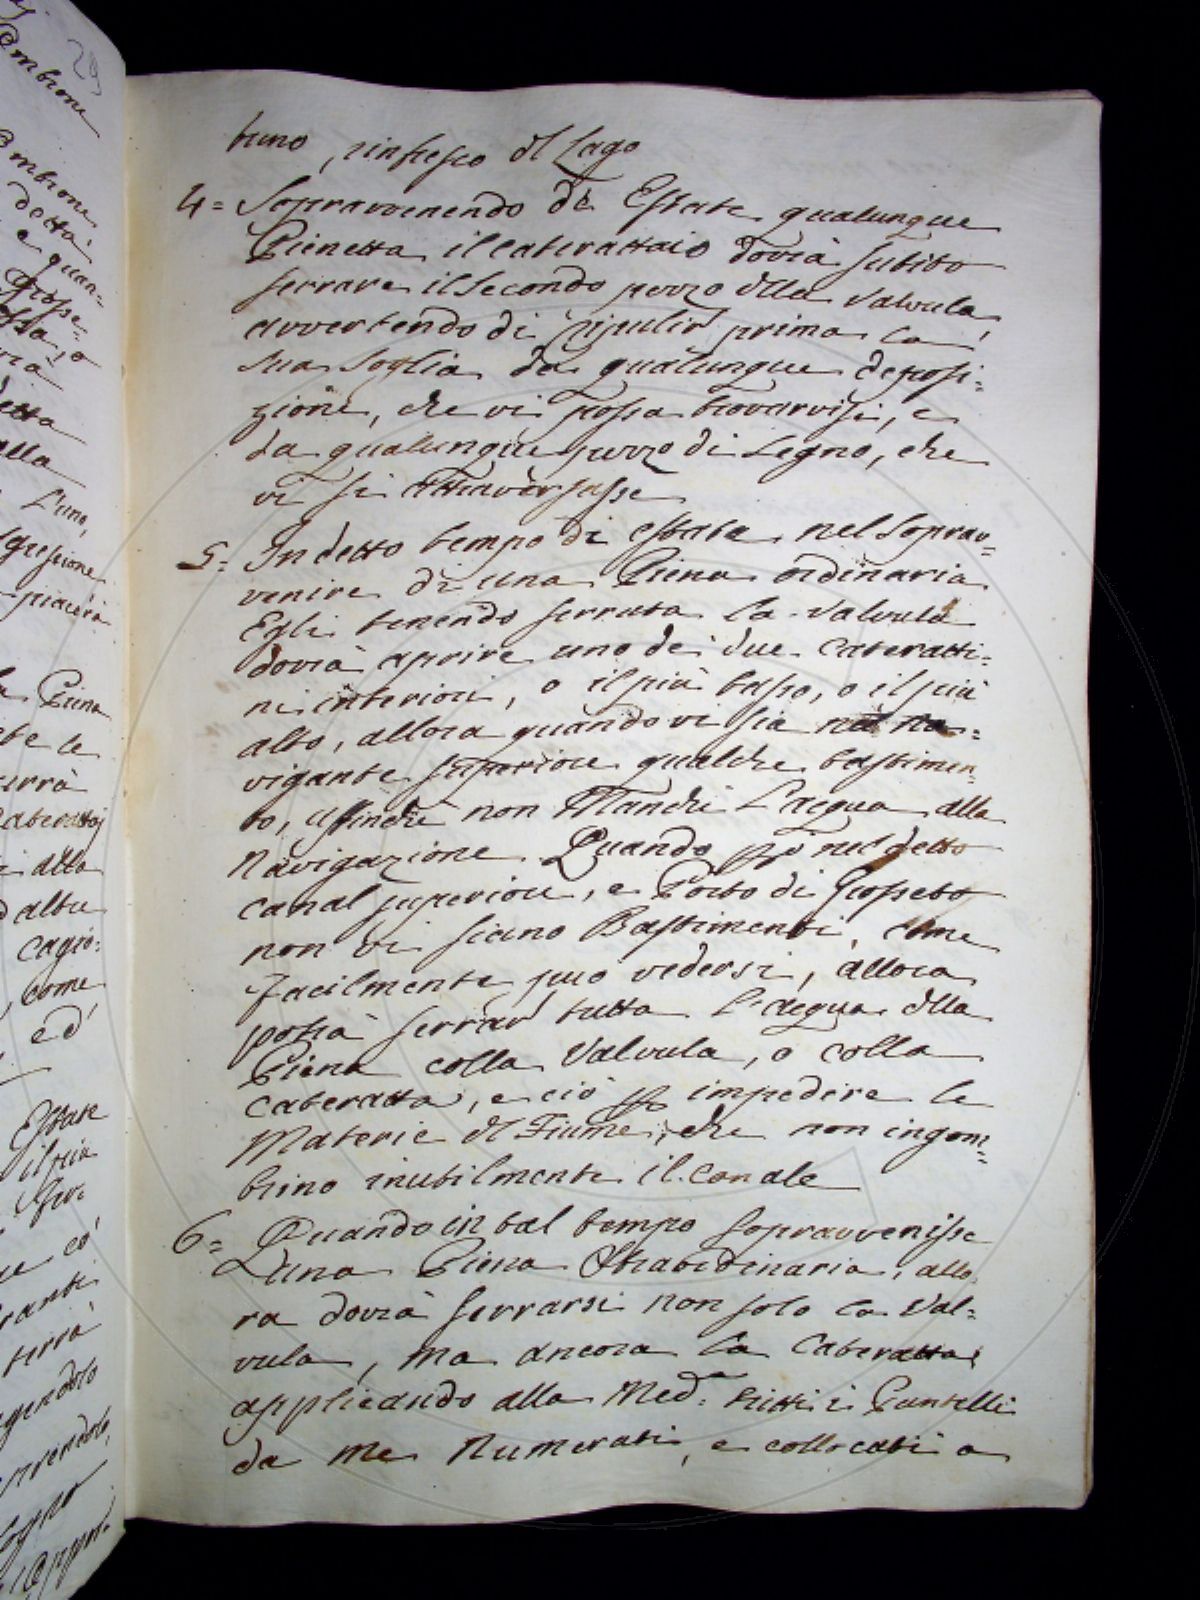 29
tuno, rinfresco dl Lago
4= Sopravvenendo di Estate qualunque
Pienetta il caterattaio dovrà subito
serrare il secondo pezzo dlla valvula,
avvertendo di ripulir prima la
sua soglia da qualunque deposi=
zione, che vi possa trovarvisi, e
da qualunque pezzo di Legno, che
vi si attraversasse
5= In detto tempo di estate nel soprav=
venire di una Piena ordinaria
Egli tenendo serrata la valvula
dovrà aprire uno dei due cateratti=
ni interiori, o il più basso, o il più
alto, allora quando vi sia nel na=
vigante superiore qualche bastimen=
to, affinchè non Manchi l'acqua alla
Navigazione. Quando poi nel detto
canal superiore, e Porto di Grosseto
non vi sieno Bastimenti, come
facilmente può vedersi, allora
potrà serrar tutta l'acqua dlla
Piena colla Valvula, o colla
cateratta, e ciò p impedire le
Materie dl Fiume, che non ingom=
brino inutilmente il Canale
6= Quando in tal tempo sopravvenisse
una Piena Straordinaria, allo
ra dovrà serrarsi non solo la Val=
vula, ma ancora la Cateratta
applicando alla Med.a tutti i Puntelli
da me Numerati, e collocati a